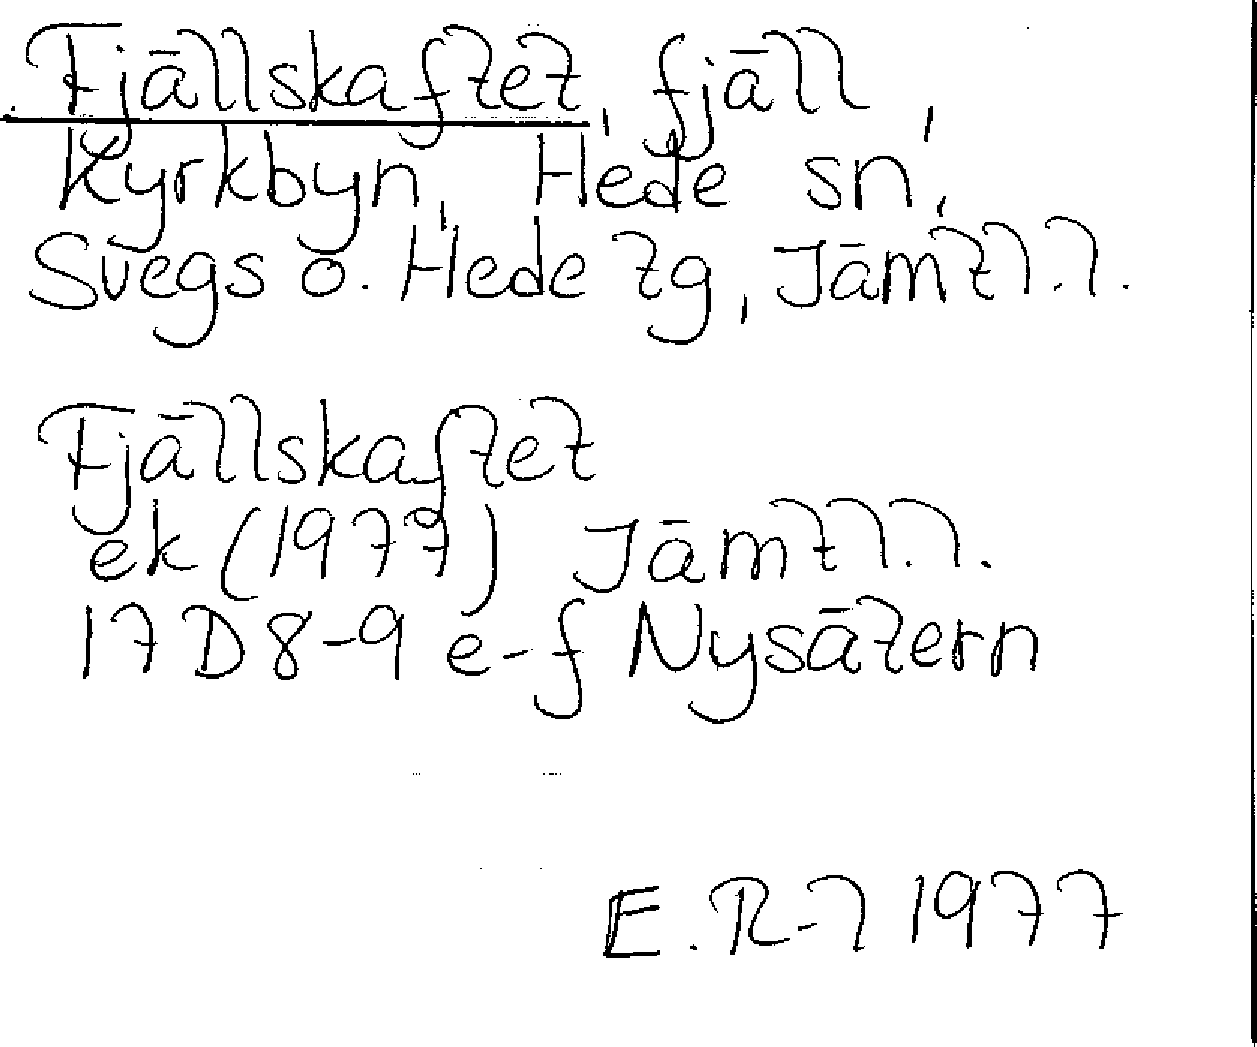 Fjällskaftet, fjäll,
Kyrkbyn, Hede sn,
Svegs o. Hede tg, Jämtl.l.
Fjällskaftet
ek (1977) Jämtl.l.
17D 8-9 e-f Nysätern
E.R-l 1977